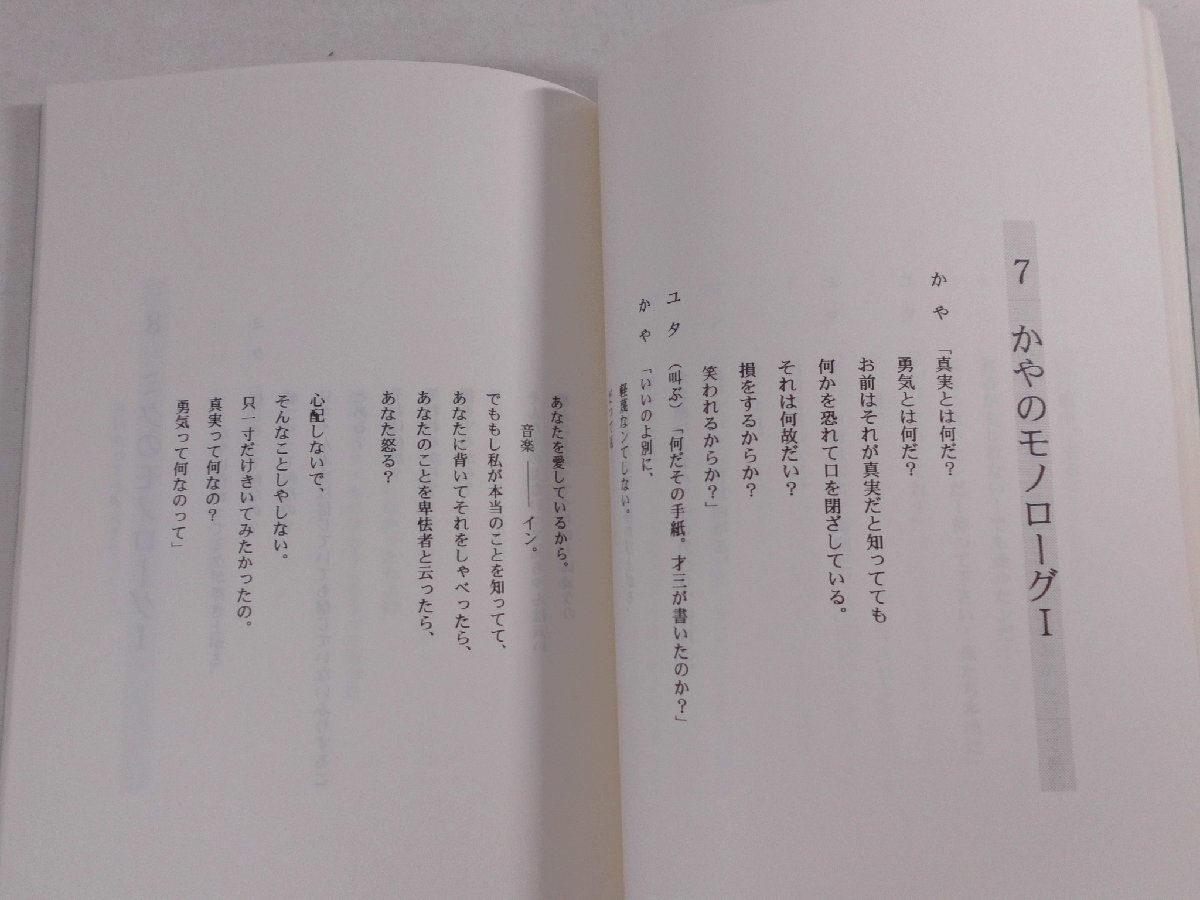 7 かやのモノローグI
かや 「真実とは何だ?
勇気とは何だ?
お前はそれが真実だと知ってても
何かを恐れて口を閉ざしている。
それは何故だい?
損をするからか?
笑われるからか?」
ユタ (叫ぶ)「何だその手紙。才三が書いたのか?」
かや 「いいのよ別に、
軽蔑なンてしない。
あなたを愛しているから。
音楽――イン。
でももし私が本当のことを知ってて、
あなたに背いてそれをしゃべったら、
あなたのことを卑怯者と云ったら、
あなた怒る?
心配しないで、
そんなことしやしない。
只一寸だけきいてみたかったの。
真実って何なの?
勇気って何なのって」